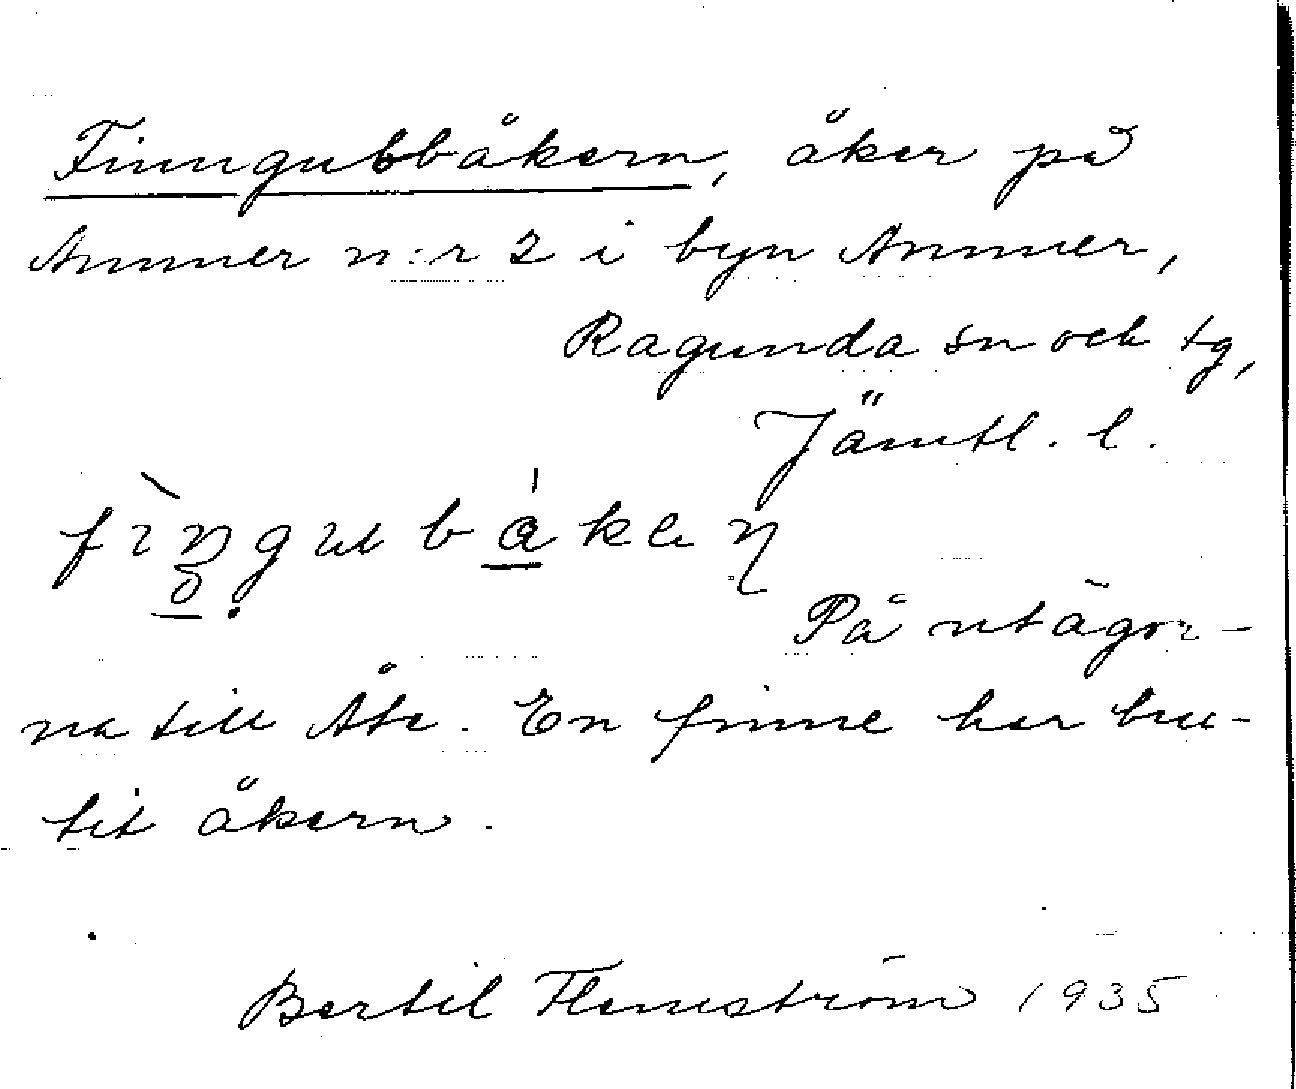 Finngubbåkern, åker på
Ammer n:r 2 i byn Ammer,
Ragunda sn och tg,
Jämtl. l.
På utägor-
na till Åte. En finne har bru-
tit åkern.
Bertil Flemström 1935